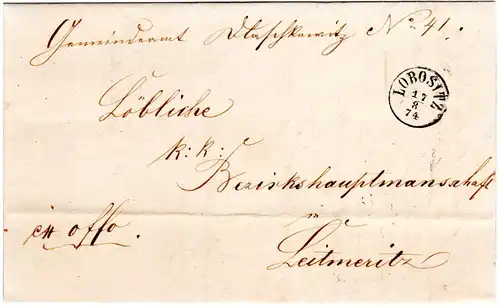 Gemeindeamt Dlaschkowitz No 41.
LOBOSITZ
17
8
74
Löbliche
k: k:
Bezirkshauptmanschaft
in
Leitmeritz
ex offo.